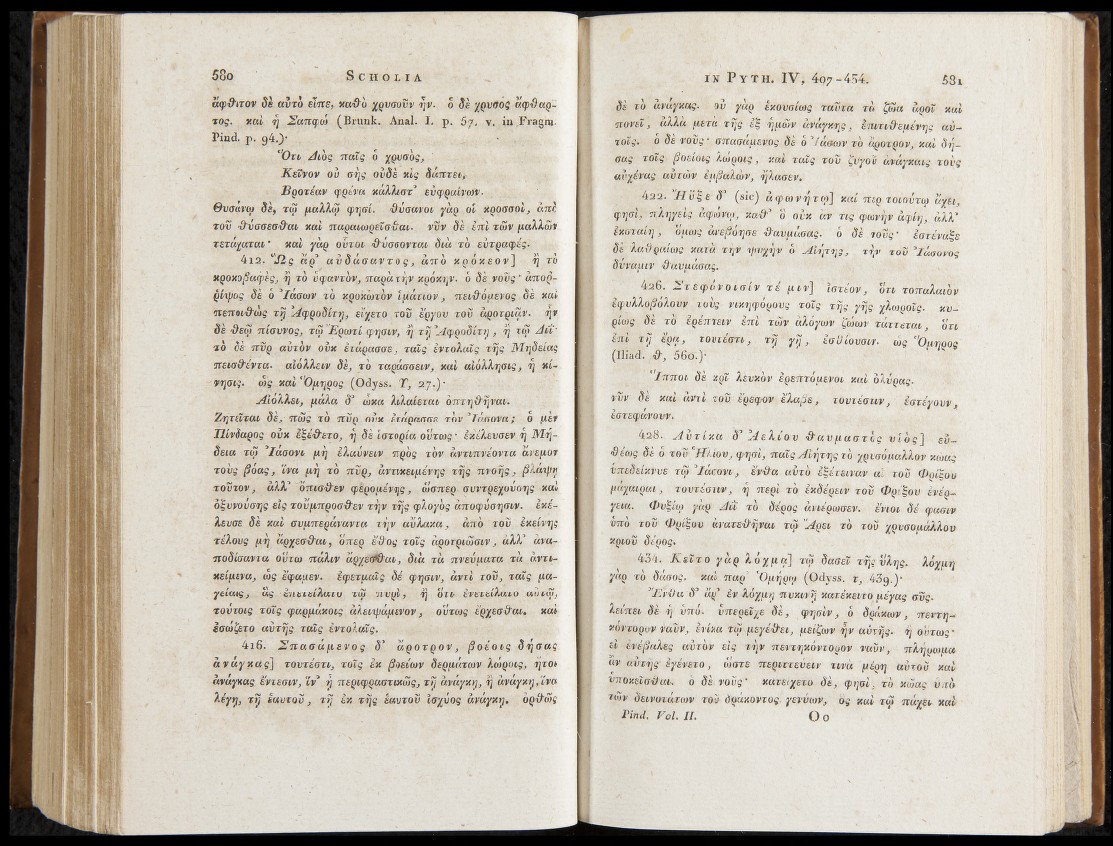 580 SCHOLIA
ἄφθιτον δὲ αὐτὸ εἶπε, καθὸ χρυσοῦν ἦν. ὁ δὲ χρυσὸς ἄφθαρ-
τος. καὶ ἡ Σαπφώ (Brunk. Anal. I. p. 57. v. in Fragm.
Pind. p. 94.)·
Ὅτι Διὸς παῖς ὁ χρυσὸς,
Κεῖνον οὐ σὴς οὐδὲ κὶς δάπτει,
Βροτέαν φρένα κάλλιστ’ εὐφραίνων.
Θυσάνῳ δὲ, τῷ μαλλῷ φησί. θύσανοι γὰρ οἱ κροσσοὶ, ἀπὸ
τοῦ θύσσεσθαι καὶ παραιωρεῖσθαι. νῦν δὲ ἐπὶ τῶν μαλλῶν
τετάχαται· καὶ γὰρ οὗτοι θύσσονται διὰ τὸ εὐτραφές.
412. Ὣς ἄρ’ αὐδάσαντος, ἀπὸ κρόκεον] ἢ τὸ
κροκοβαφὲς, ἢ τὸ ὑφαντὸν, παρὰ τὴν κρόκην. ὁ δὲ νοῦς· ἀποῤ-
ῥίψας δὲ ὁ Ἰάσων τὸ κροκωτὸν ἱμάτιον, πειθόμενος δὲ καὶ
πεποιθὼς τῇ Ἀφροδίτῃ, εἴχετο τοῦ ἔργου τοῦ ἀροτριᾷν. ἦν
δὲ θεῷ πίσυνος, τῷ Ἔρωτί φησιν, ἢ τῇ Ἀφροδίτῃ, ἢ τῷ Διΐ·
τὸ δὲ πῦρ αὐτὸν οὐκ ἐτάρασσε, ταῖς ἐντολαῖς τῆς Μηδείας
πεισθέντα. αἰόλλειν δὲ, τὸ ταράσσειν, καὶ αἰόλλησις, ἡ κί-
νησις. ὡς καὶ Ὅμηρος (Odyss. Υ, 27.)·
Αἰόλλει, μάλα δ’ ὦκα λιλαίεται ὀπτηθῆναι.
Ζητεῖται δὲ, πῶς τὸ πῦρ οὐκ ἐτάρασσε τὸν Ἰάσονα; ὁ μὲν
Πίνδαρος οὐκ ἐξέθετο, ἡ δὲ ἱστορία οὕτως· ἐκέλευσεν ἡ Μή-
δεια τῷ Ἰάσονι μὴ ἐλαύνειν πρὸς τὸν ἀντιπνέοντα ἄνεμον
τοὺς βόας, ἵνα μὴ τὸ πῦρ, ἀντικειμένης τῆς πνοῆς, βλάψῃ
τοῦτον, ἀλλ’ ὄπισθεν φερομένης, ὥσπερ συντρεχούσης καὶ
ὀξυνούσης εἰς τοὔμπροσθεν τὴν τῆς φλογὸς ἀποφύσησιν. ἐκέ-
λευσε δὲ καὶ συμπεράναντα τὴν αὔλακα, ἀπὸ τοῦ ἐκείνης
τέλους μὴ ἄρχεσθαι, ὅπερ ἔθος τοῖς ἀροτριῶσιν, ἀλλ’ ἀνα-
ποδίσαντα οὕτω πάλιν ἄρχεσθαι, διὰ τὰ πνεύματα τὰ ἀντι-
κείμενα, ὡς ἔφαμεν. ἐφετμαῖς δέ φησιν, ἀντὶ τοῦ, ταῖς μα-
γείαις, ἃς ἐπετείλατο τῷ πυρὶ, ἢ ὅτι ἐνετείλατο αὐτῷ,
τούτοις τοῖς φαρμάκοις ἀλειψάμενον, οὕτως ἔρχεσθαι. καὶ
ἐσώζετο αὐτῆς ταῖς ἐντολαῖς.
416. Σπασάμενος δ’ ἄροτρον, βοέοις δήσας
ἀνάγκας] τουτέστι, τοῖς ἐκ βοείων δερμάτων λώροις, ἤτοι
ἀνάγκας ἔντεσιν, ἵν’ ᾖ περιφραστικῶς, τῇ ἀνάγκῃ, ἢ ἀνάγκῃ, ἵνα
λέγῃ, τῇ ἑαυτοῦ, τῇ ἐκ τῆς ἑαυτοῦ ἰσχύος ἀνάγκῃ. ὀρθῶς
IN PYTH. IV, 407-454. 581
δὲ τὸ ἀνάγκας. οὐ γὰρ ἑκουσίως ταῦτα τὰ ζῶα ἀροῖ καὶ
πονεῖ, ἀλλὰ μετὰ τῆς ἐξ ἡμῶν ἀνάγκης, ἐπιτιθεμένης αὐ-
τοῖς. ὁ δὲ νοῦς· σπασάμενος δὲ ὁ Ἰάσων τὸ ἄροτρον, καὶ δή-
σας τοῖς βοείοις λώροις, καὶ ταῖς τοῦ ζυγοῦ ἀνάγκαις τοὺς
αὐχένας αὐτῶν ἐμβαλὼν, ἤλασεν.
422. Ἤϋξε δ’ (sic) ἀφωνήτῳ] καί περ τοιούτῳ ἄχει,
φησὶ, πληγεὶς ἀφώνῳ, καθ’ ὃ οὐκ ἄν τις φωνὴν ἀφίῃ, ἀλλ’
ἐκσταίη, ὅμως ἀνεβόησε θαυμάσας. ὁ δὲ νοῦς· ἐστέναξε
δὲ λαθραίως κατὰ τὴν ψυχὴν ὁ Αἰήτης, τὴν τοῦ Ἰάσονος
δύναμιν θαυμάσας.
426. Στεφάνοισίν τέ μιν] ἰστέον, ὅτι τοπαλαιὸν
ἐφυλλοβόλουν τοὺς νικηφόρους τοῖς τῆς γῆς χλωροῖς. κυ-
ρίως δὲ τὸ ἐρέπτειν ἐπὶ τῶν ἀλόγων ζώων τάττεται, ὅτι
ἐπὶ τῇ ἔρᾳ, τουτέστι, τῇ γῇ, ἐσθίουσιν. ὡς Ὅμηρος
(Iliad. θ, 560.)·
Ἵπποι δὲ κρῖ λευκὸν ἐρεπτόμενοι καὶ ὀλύρας.
νῦν δὲ καὶ ἀντὶ τοῦ ἔρεφον ἔλαβε, τουτέστιν, ἔστεγουν,
ἐστεφάνουν.
428. Αὐτίκα δ’ Ἀελίου θαυμαστὸς υἱὸς] εὐ-
θέως δὲ ὁ τοῦ Ἡλίου, φησὶ, παῖς Αἰήτης τὸ χρυσόμαλλον κῶας
ὑπεδείκνυε τῷ Ἰάσονι, ἔνθα αὐτὸ ἐξέτειναν αἱ τοῦ Φρίξου
μάχαιραι, τουτέστιν, ἡ περὶ τὸ ἐκδέρειν τοῦ Φρίξου ἐνέρ-
γεια. Φυξίῳ γὰρ Διῒ τὸ δέρος ἀνιέρωσεν. ἔνιοι δέ φασιν
ὑπὸ τοῦ Φρίξου ἀνατεθῆναι τῷ Ἄρει τὸ τοῦ χρυσομάλλου
κριοῦ δέρος.
434. Κεῖτο γὰρ λόχμᾳ] τῷ δασεῖ τῆς ὕλης. λόχμη
γὰρ τὸ δάσος. καὶ παρ’ Ὁμήρῳ (Odyss. τ, 439.)·
Ἔνθα δ’ ἄρ’ ἐν λόχμῃ πυκινῇ κατέκειτο μέγας σῦς.
λείπει δὲ ἡ ὑπό. ὑπερεῖχε δὲ, φησὶν, ὁ δράκων, πεντη-
κόντορον ναῦν, ἐνίκα τῷ μεγέθει, μείζων ἦν αὐτῆς. ἢ οὕτως·
εἰ ἐνέβαλες αὐτὸν εἰς τὴν πεντηκόντορον ναῦν, πλήρωμα
ἂν αὐτῆς ἐγένετο, ὥστε περιττεύειν τινὰ μέρη αὐτοῦ καὶ
ὑποκεῖσθαι. ὁ δὲ νοῦς· κατείχετο δὲ, φησὶ, τὸ κῶας ὑπὸ
τῶν δεινοτάτων τοῦ δράκοντος γενύων, ὃς καὶ τῷ πάχει καὶ
Pind. Vol. II. Oo